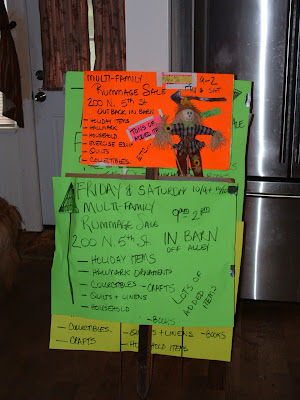 MULTI-FAMILY 9-2
RUMMAGE SALE FRI & SAT
200 N. 5th St
OUT BACK IN BARN
TONS OF
ADDED ITEMS
- HOLIDAY ITEMS
- HALLMARK
- HOUSEHOLD
- EXERCISE EQUIP
- QUILTS
- COLLECTIBLES
FRIDAY & SATURDAY
MULTI-FAMILY
RUMMAGE SALE 9am-2pm
200 N. 5th St IN BARN
OFF ALLEY
- HOLIDAY ITEMS
- HALLMARK ORNAMENTS
- COLLECTIBLES - CRAFTS
- QUILTS & LINENS
- HOUSEHOLD
LOTS OF
ADDED
ITEMS
- BOOKS
- COLLECTIBLES
- CRAFTS
& LINENS - BOOKS
ITEMS